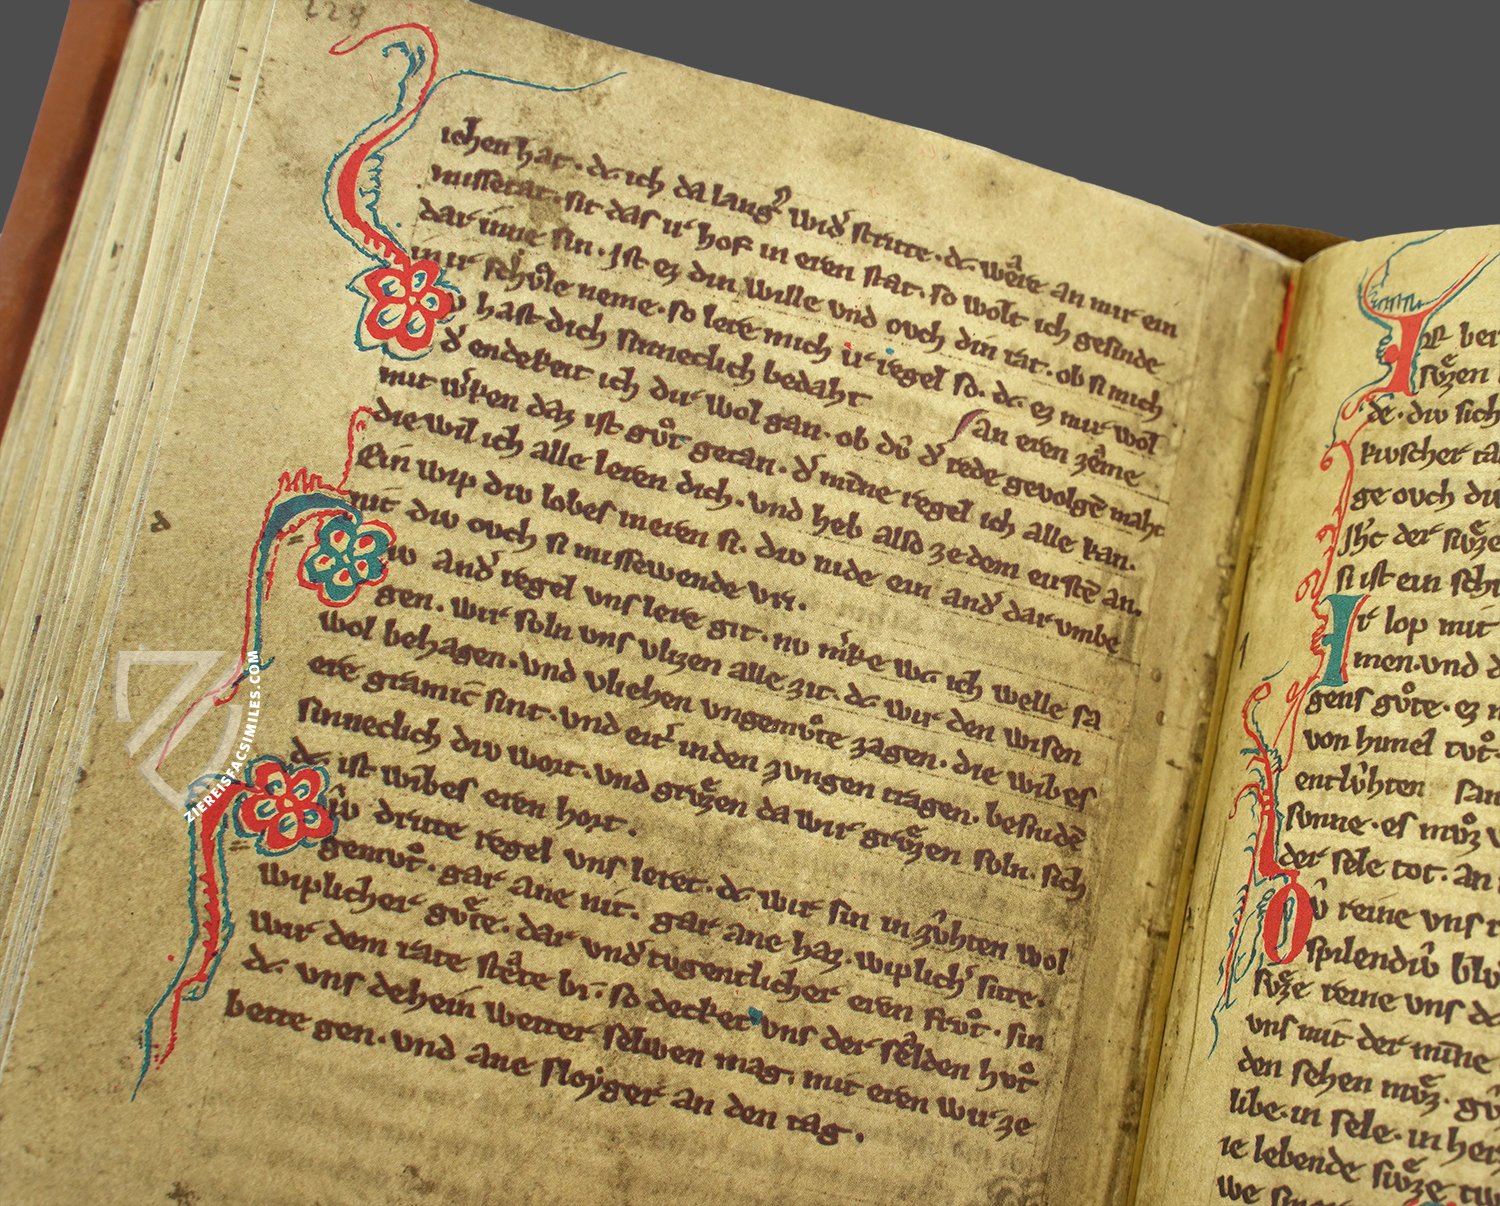 228
ichen hat · dc ich da lang͛ wid͛ stritte · dc wêre an mir ein
missetat · sit das ir hof in eren stat · so wolt ich gesinde
dar inne sin · Jst ez din wille vnd ovch din rat · ob si mich
mir schvͦle neme · so lere mich ir regel so · dc ez mir wol
hast dich sinneclich bedaht an eren zême
d͛ endekeit ich dir wol gan · ob dv̂ d͛ rede gevolgē maht
mit w͛ken daz ist gvͦt getan · d͛ mīne regel ich alle kan.
die wil ich alle leren dich · vnd heb also ze dem erstē an.
Ein wip div lobes meren si · div nide ein and͛ dar vmbe
nit div ovch si missewende vri.
iv and͛ regel vns lere git · nv m͛ke wc ich welle sa
gen. wir soln vns vlizen alle zit · dc wir den wisen
wol behagen · vnd vliehen vngemvͦte zagen · die wibes
ere gramic sint · vnd eit͛ inden zvngen tragen. bescidē
sinneclich div wort · vnd grvͤzen da wir grvͤzen soln. sich
dc ist wibes eren hort.
iv dritte regel vns leret · dc wir sin in zv̂hten wol
gemvͦt · gar ane nit. gar ane haz. wiplich͛ site.
wiplicher gvͤte. dar vnd͛ tvgentlicher eren frvͦt · sin
wir dem rate stête bi · so decket vns der sêlden hvͦt
dc vns dehein wetter selwen mag. mit eren wir ze
bette gen. vnd ane sloyger an den tag.
ZIEREISFACSIMILES.COM
Ir
svͤzen
de · div sich
kivscher
ge ovch div
Jhc der svͤze
si ist ein
Ir lop mit
men · vnd d
gens gvͦte · ez
von himel
entlv̂hten
svnne · es mvͦz
der sele tot · an
v̂ reine vns
spilendiv̂ blv
svͤze reine vns
vns mit der mīne
den sehen mvͤz · gv
libe · in sele · in her
ie lebende svͤze
we